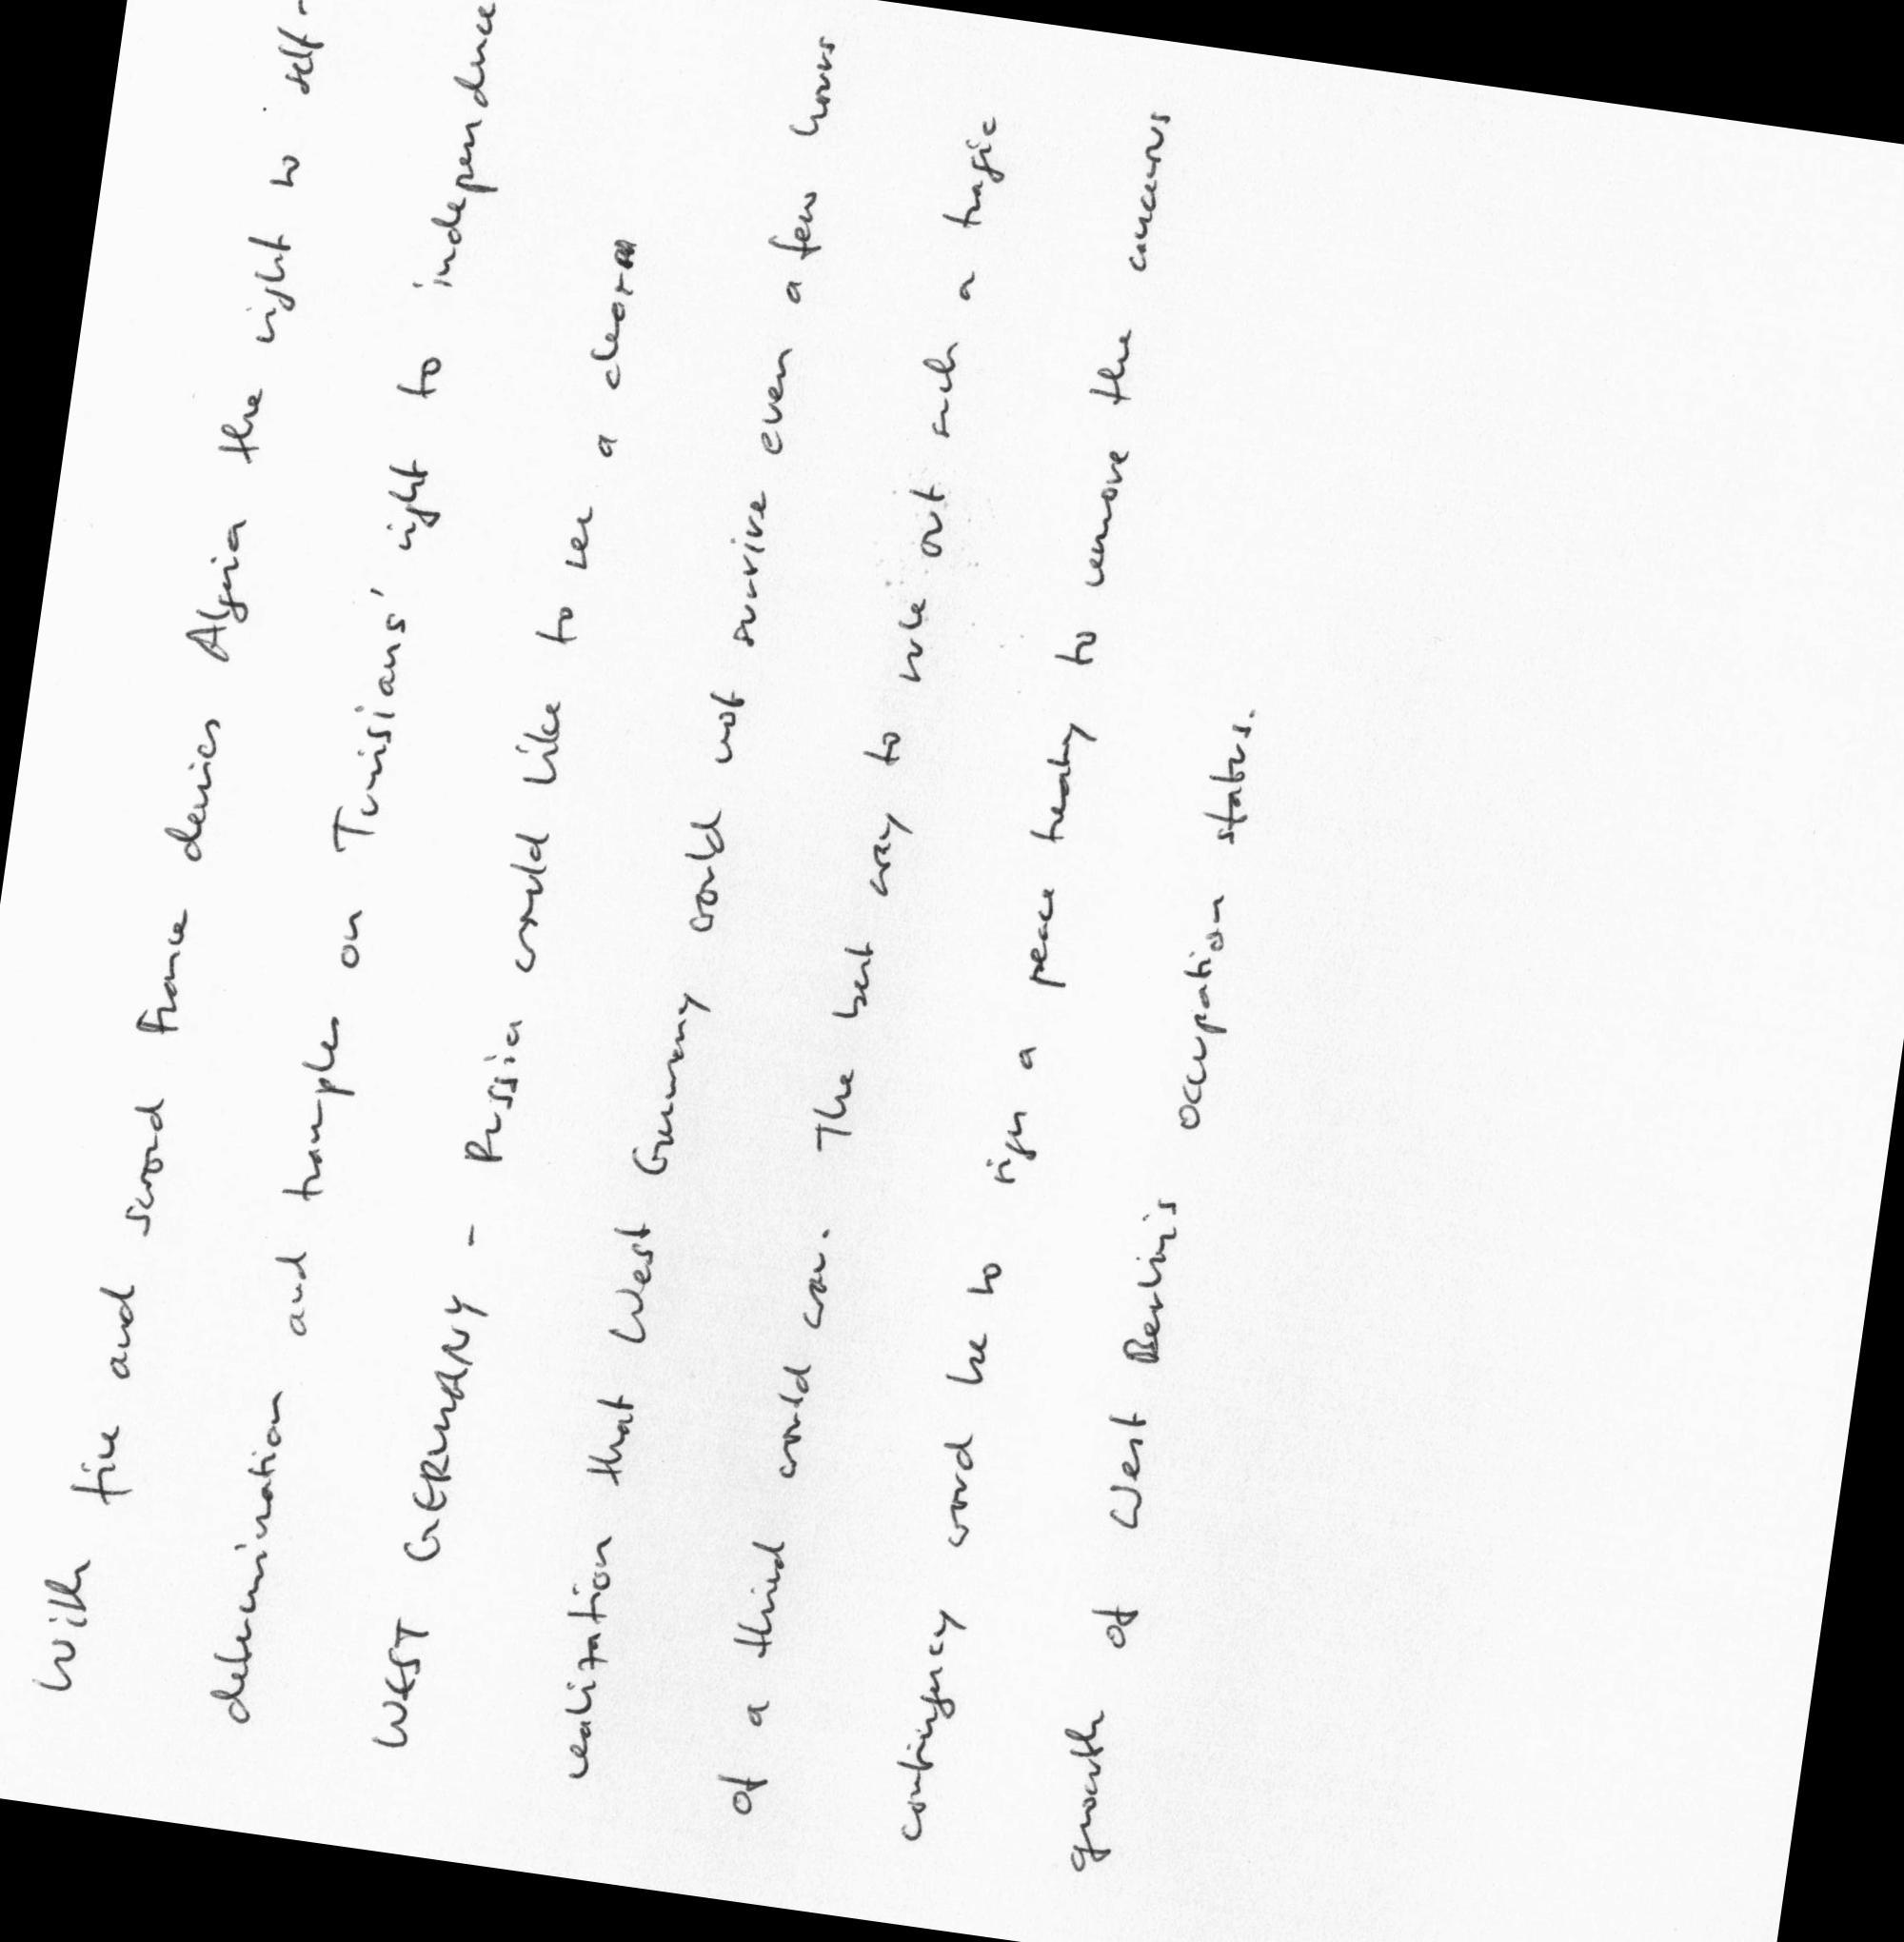 With fire and sword France denies Algeria the right to self-
determination and tramples on Tunisians' right to independence
WEST GERMANY - Russia would like to see a clear
realization that West Germany would not survive even a few hours
of a third world war. The best way to rule out such a tragic
contingency would be to sign a peace treaty to remove the cancerous
growth of West Berlin's occupation status.